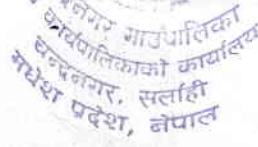 चन्द्रनगर गाउँपालिका
कार्यपालिकाको कार्यालय
चन्द्रनगर, सर्लाही
मधेश प्रदेश, नेपाल